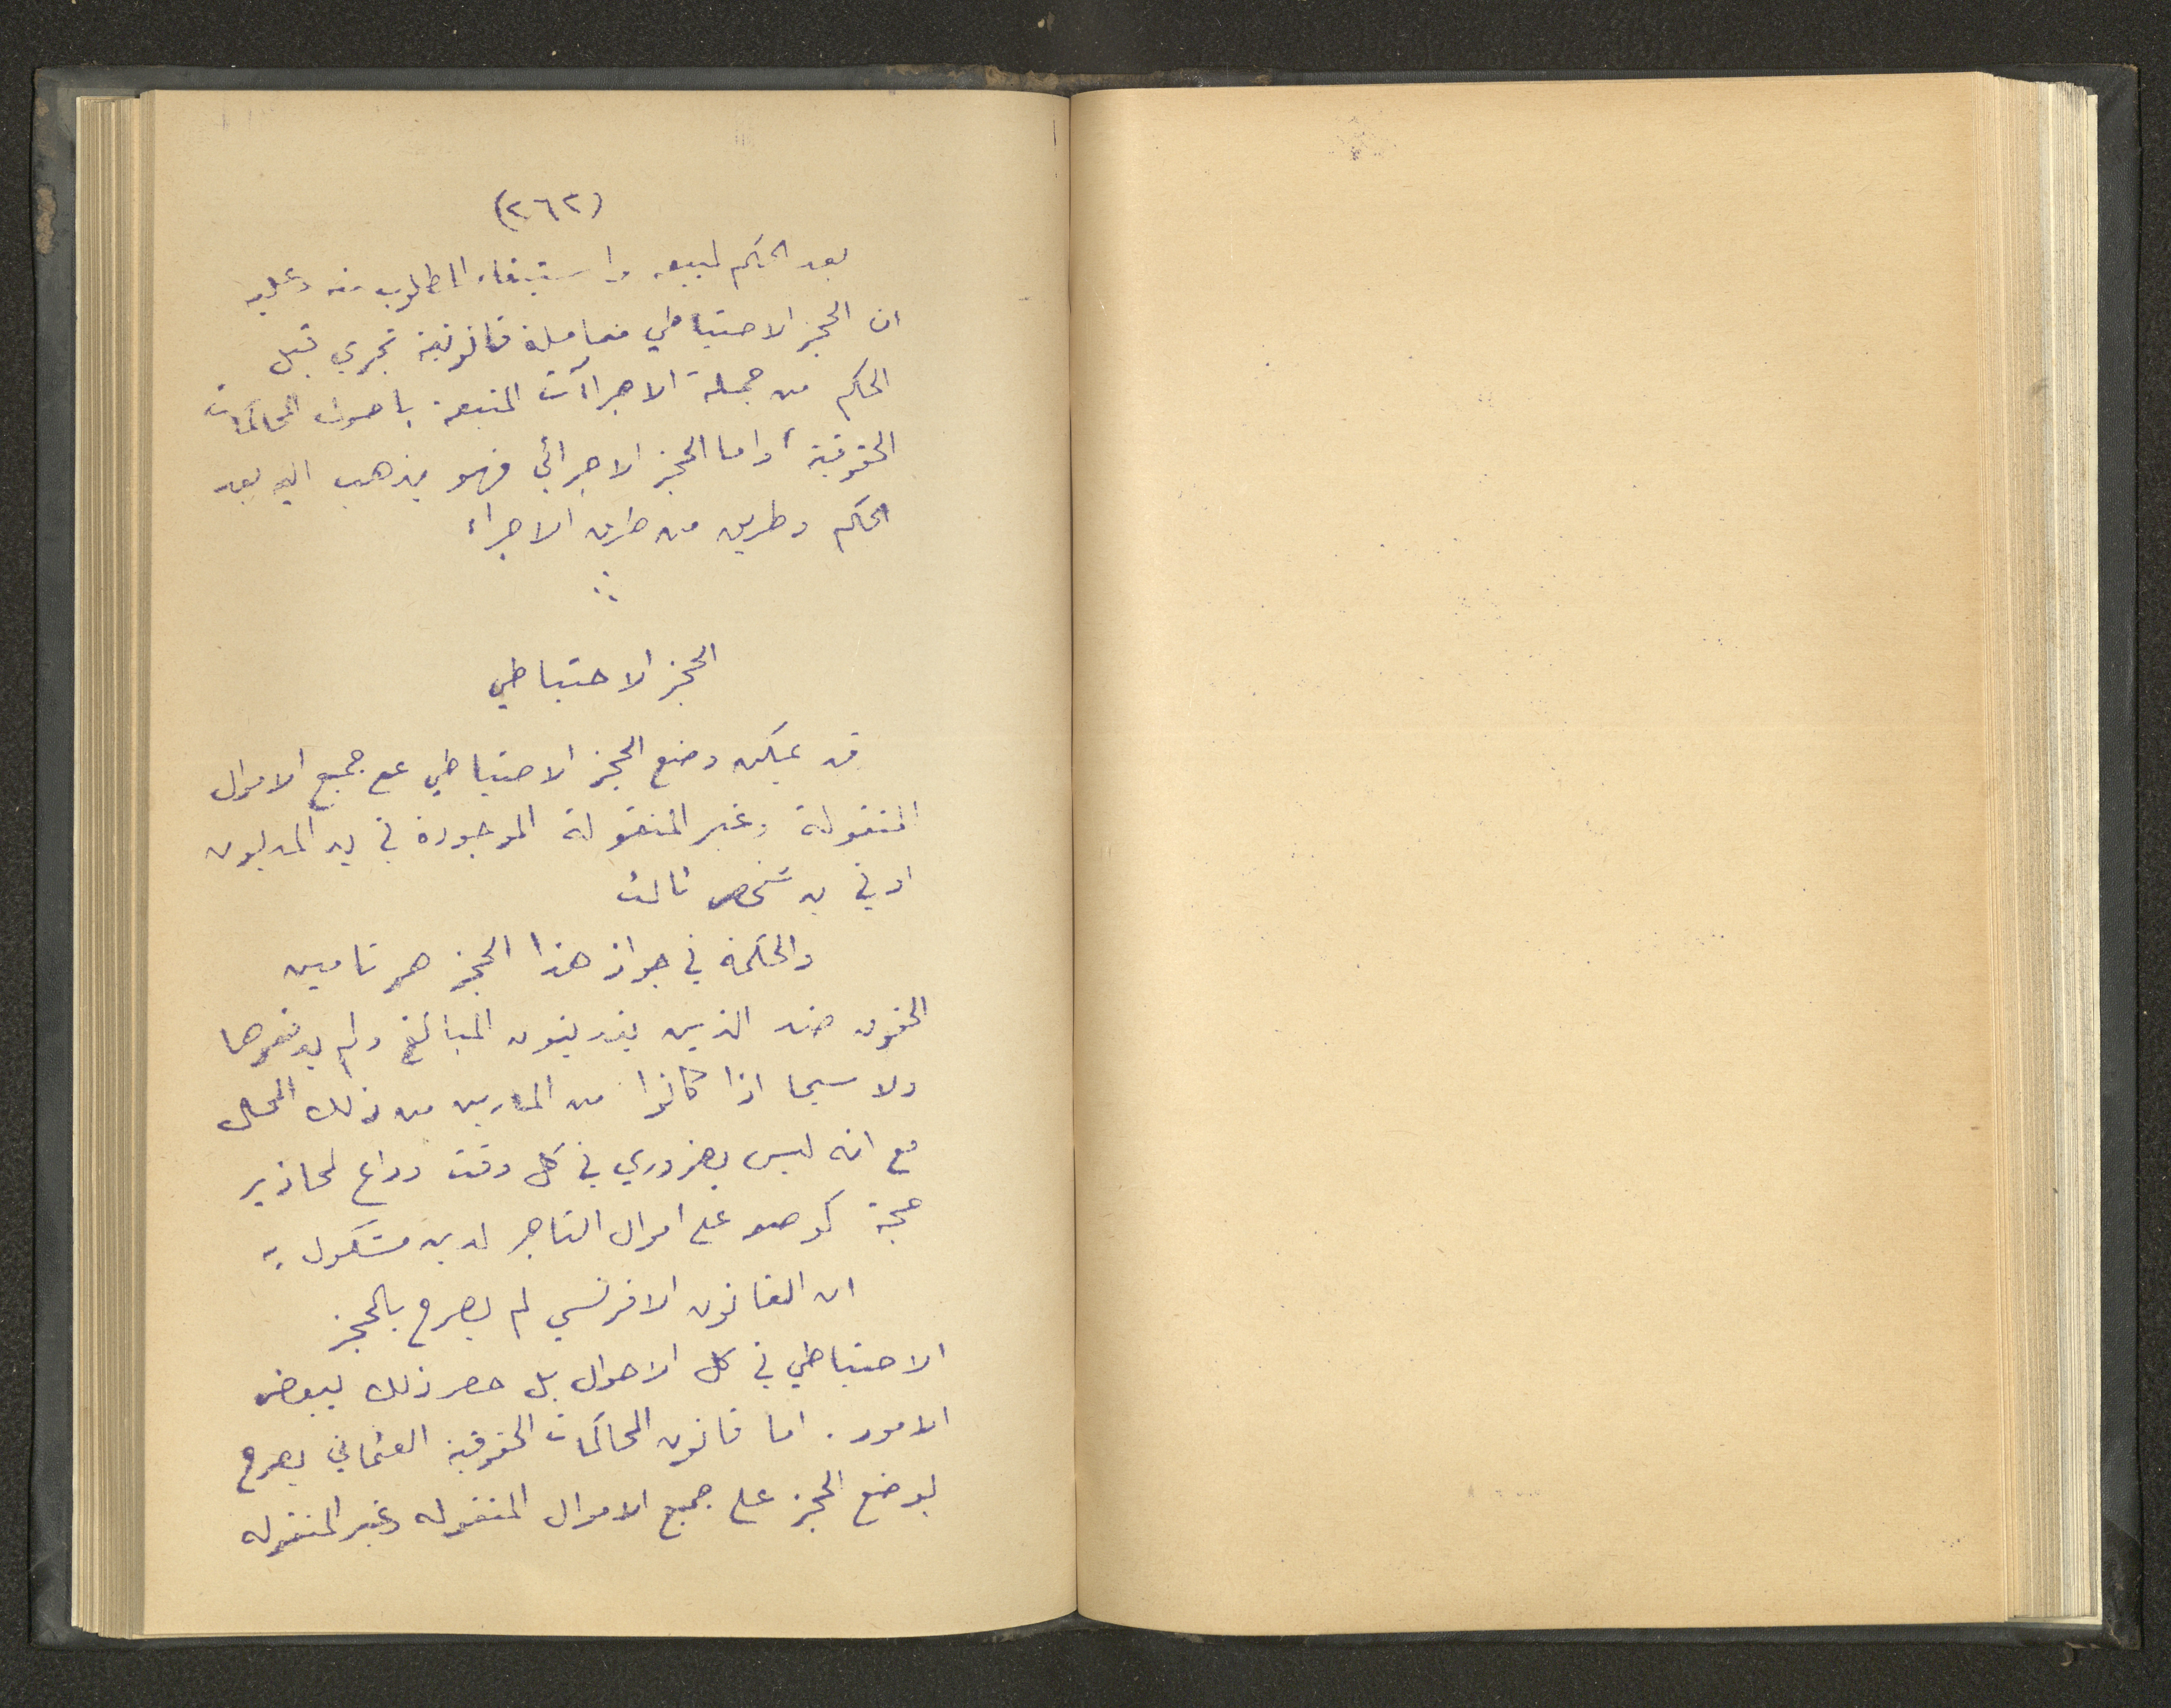 (٢٦٢)
بعد الحكم لبيعه واستيفاء المطلوب منه وعليه
ان الحجز الاحتياطي فمعاملة قانونية تجري قبل
الحكم من جملة الاجراآت المتبعة باصول المحاكمات
الحقوقية، واما الحجز الاجرائي فهو يذهب اليه بعد
الحكم وطريق من طرق الاجراء
الحجز الاحتياطي
قد يمكن وضع الحجز الاحتياطي على جميع الاموال
المنقولة وغير المنقولة الموجودة في يد المديون
او في يد شخص ثالث
والحكمة في جواز هذا الحجز هو تامين
الحقوق ضد الذين يديينون المبالغ ولم يدفعوها
ولا سيما اذا كانوا من المارين من ذلك المحل
مع انه ليس بضروري في كل وقت وداع لمحاذير
جمة كوضعه على اموال التاجر لدين مشكوك به
ان القانون الافرنسي لم يصرح بالحجز
الاحتياطي في كل الاحوال بل حصر ذلك ببعض
الامور . اما قانون المحاكمات الحقوقية العثماني يصرح
بوضع الحجز على جميع الاموال المنقوله وغير المنقوله